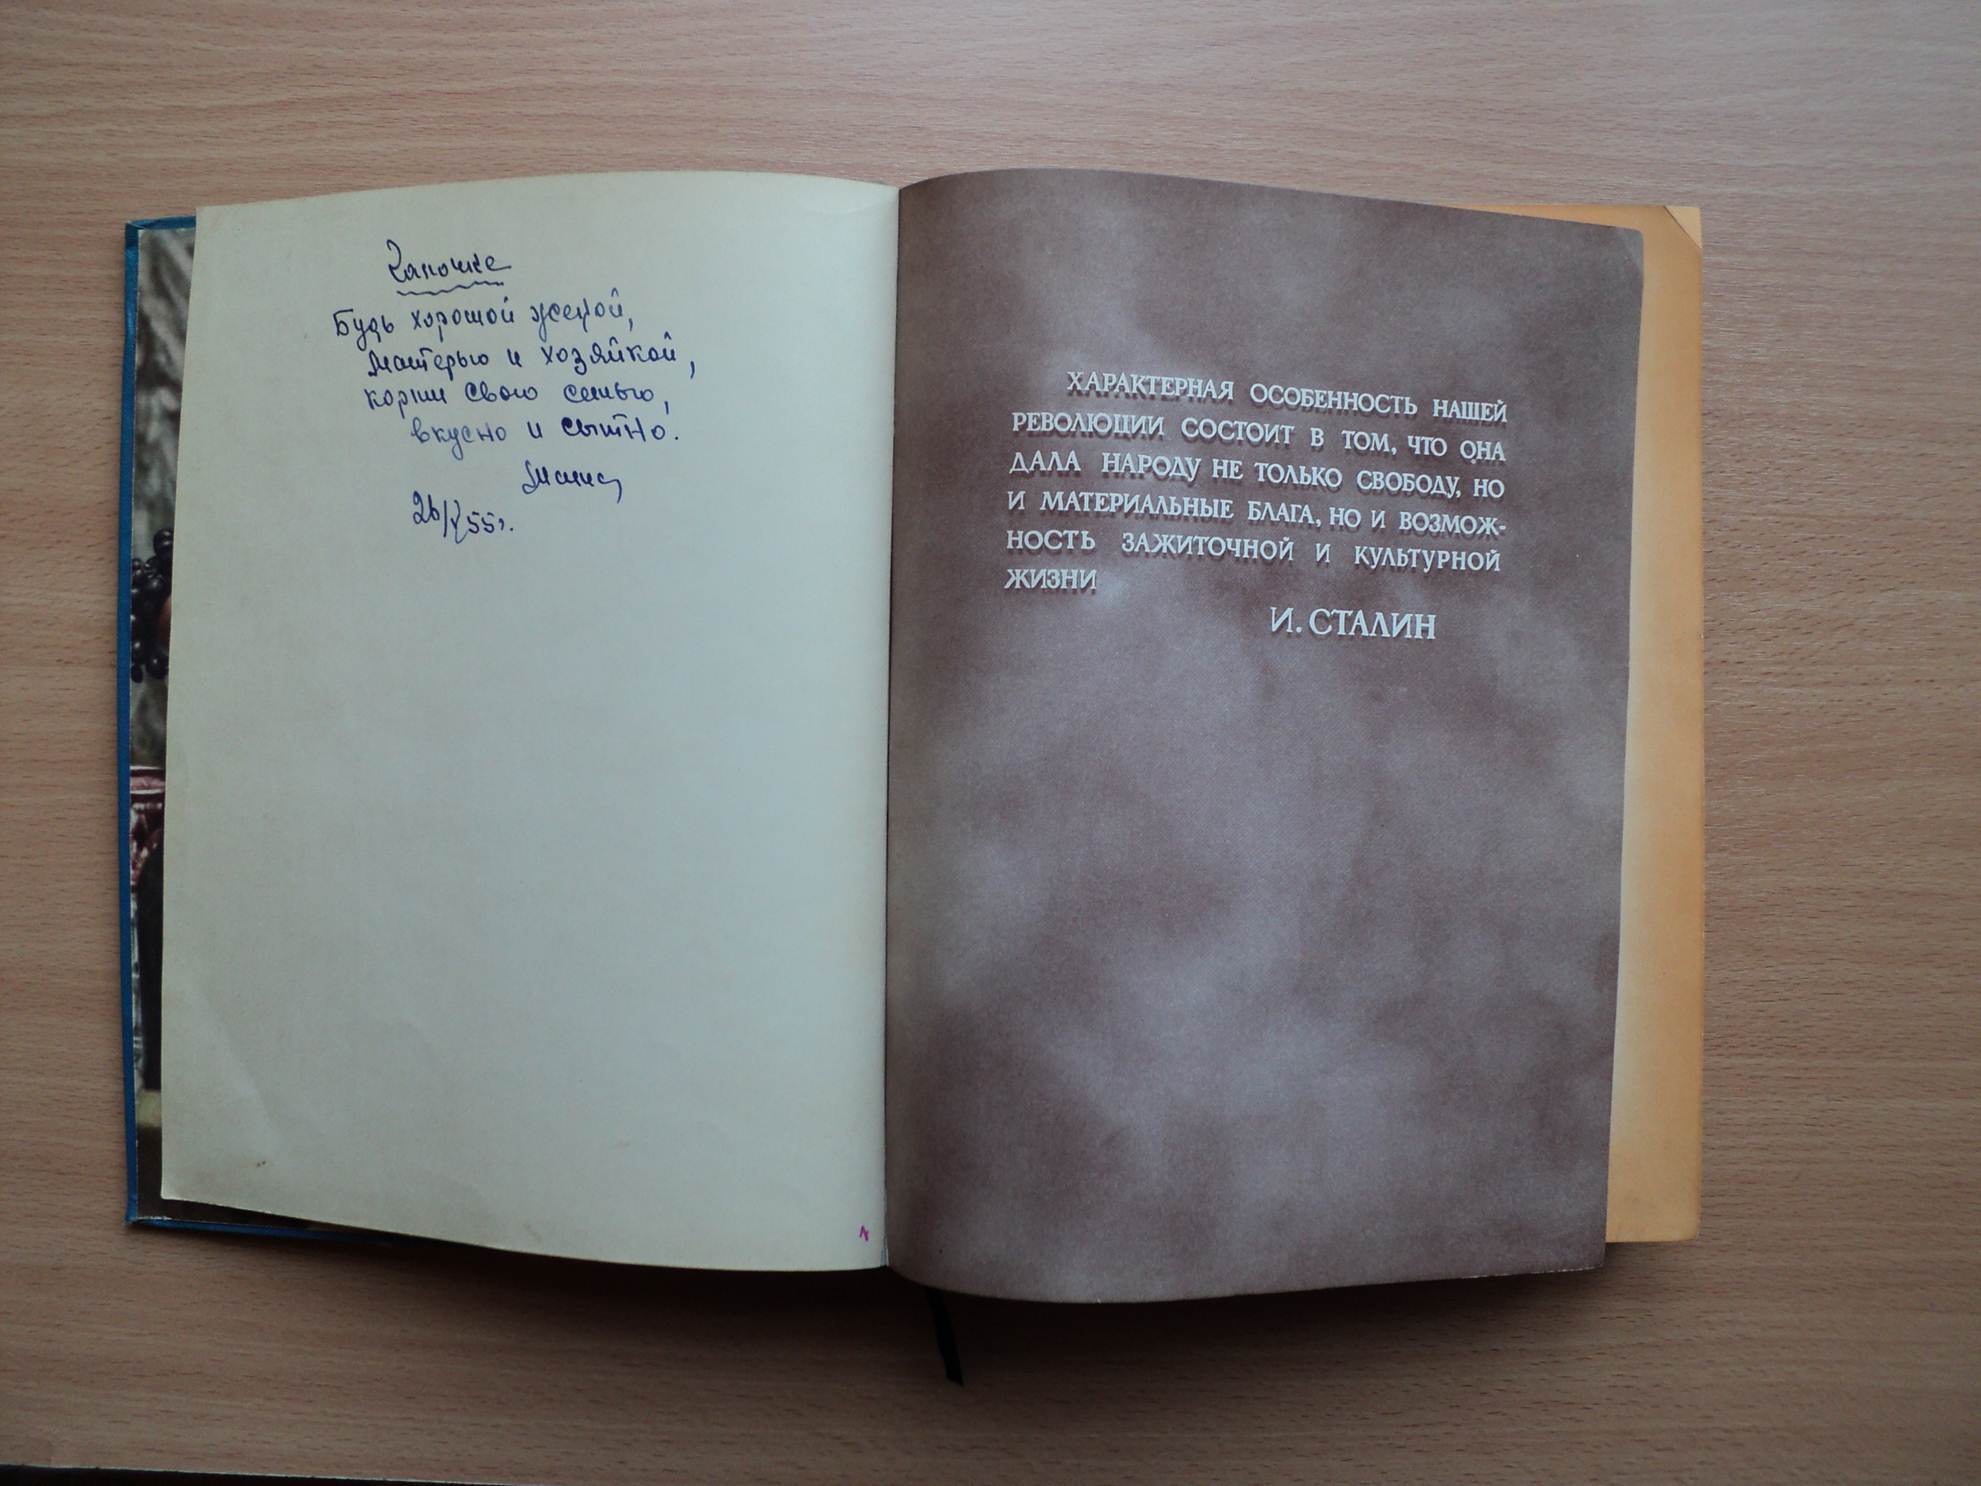 Будь хорошой женой,
матерью и хозяйкой,
корми свою семью,
вкусно и сытно.
Мама
26/X 55г.
ХАРАКТЕРНАЯ ОСОБЕННОСТЬ НАШЕЙ
РЕВОЛЮЦИИ СОСТОИТ В ТОМ, ЧТО ОНА
ДАЛА НАРОДУ НЕ ТОЛЬКО СВОБОДУ, НО
И МАТЕРИАЛЬНЫЕ БЛАГА, НО И ВОЗМОЖ-
НОСТЬ ЗАЖИТОЧНОЙ И КУЛЬТУРНОЙ
ЖИЗНИ
И. СТАЛИН